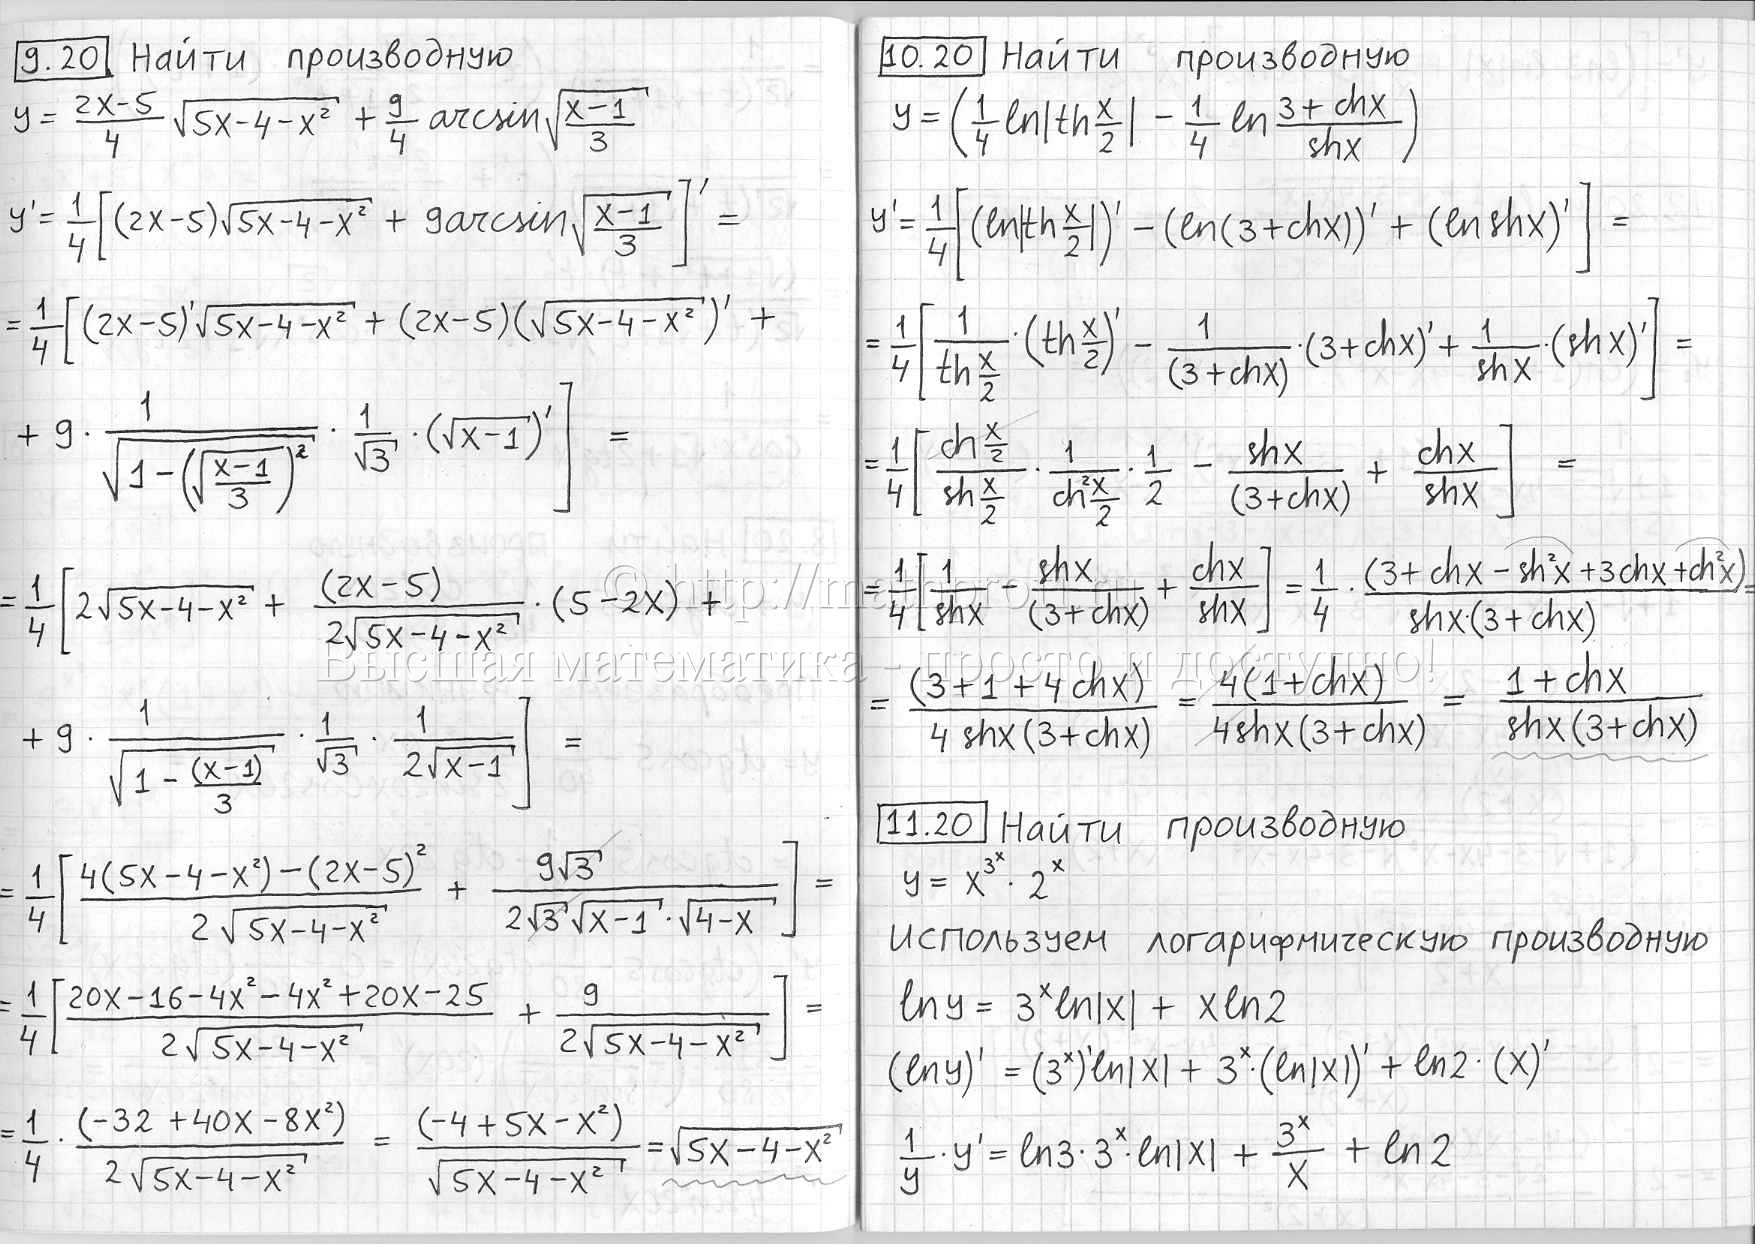 9.20 Найти производную
y = (2x-5)/4 √(5x-4-x²) + 9/4 arcsin√((x-1)/3)
y' = 1/4[(2x-5)√(5x-4-x²) + 9arcsin√((x-1)/3)]' =
= 1/4[(2x-5)'√(5x-4-x²) + (2x-5)(√(5x-4-x²))' +
+ 9 · 1/√(1-(√((x-1)/3))²) · 1/√3 · (√(x-1))'] =
= 1/4[2√(5x-4-x²) + (2x-5)/(2√(5x-4-x²)) · (5-2x) +
+ 9 · 1/√(1-(x-1)/3) · 1/√3 · 1/(2√(x-1))] =
= 1/4[(4(5x-4-x²)-(2x-5)²)/(2√(5x-4-x²)) + 9√3/(2√3√(x-1)·√(4-x))] =
= 1/4[(20x-16-4x²-4x²+20x-25)/(2√(5x-4-x²)) + 9/(2√(5x-4-x²))] =
= 1/4 · (-32+40x-8x²)/(2√(5x-4-x²)) = (-4+5x-x²)/√(5x-4-x²) = √(5x-4-x²)
10.20 Найти производную
y = (1/4 ln|th x/2| - 1/4 ln (3+chx)/shx)
y' = 1/4[(ln|th x/2|)' - (ln(3+chx))' + (ln shx)'] =
= 1/4[1/(th x/2) · (th x/2)' - 1/(3+chx) · (3+chx)' + 1/shx · (shx)'] =
= 1/4[(ch x/2)/(sh x/2) · 1/(ch² x/2) · 1/2 - shx/(3+chx) + chx/shx] =
= 1/4[1/shx - shx/(3+chx) + chx/shx] = 1/4 · (3+chx-sh²x+3chx+ch²x)/(shx·(3+chx)) =
= (3+1+4chx)/(4shx(3+chx)) = 4(1+chx)/(4shx(3+chx)) = (1+chx)/(shx(3+chx))
11.20 Найти производную
y = x^(3^x) · 2^x
Используем логарифмическую производную
ln y = 3^x ln|x| + x ln2
(ln y)' = (3^x)' ln|x| + 3^x · (ln|x|)' + ln2 · (x)'
1/y · y' = ln3 · 3^x · ln|x| + 3^x/x + ln2
Высшая математика - просто и доступно!